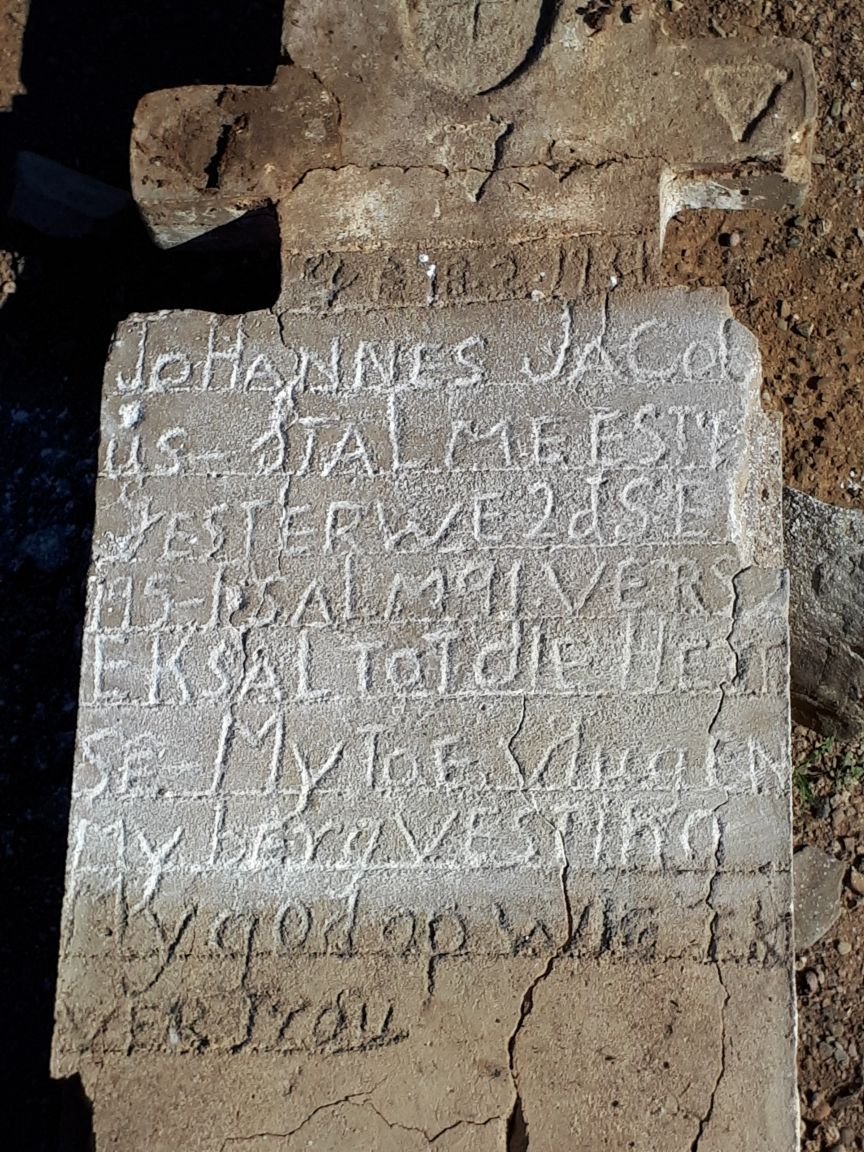 JOHANNES JACOb
üs - STALMEESTER
YESTERWE 2d SE
PSALM 91. VERS 2
EK SAL TOT dIE HEER
SE - My TOE Vlug EN
My berg VESTING
My god op WIE EK
VERTrou